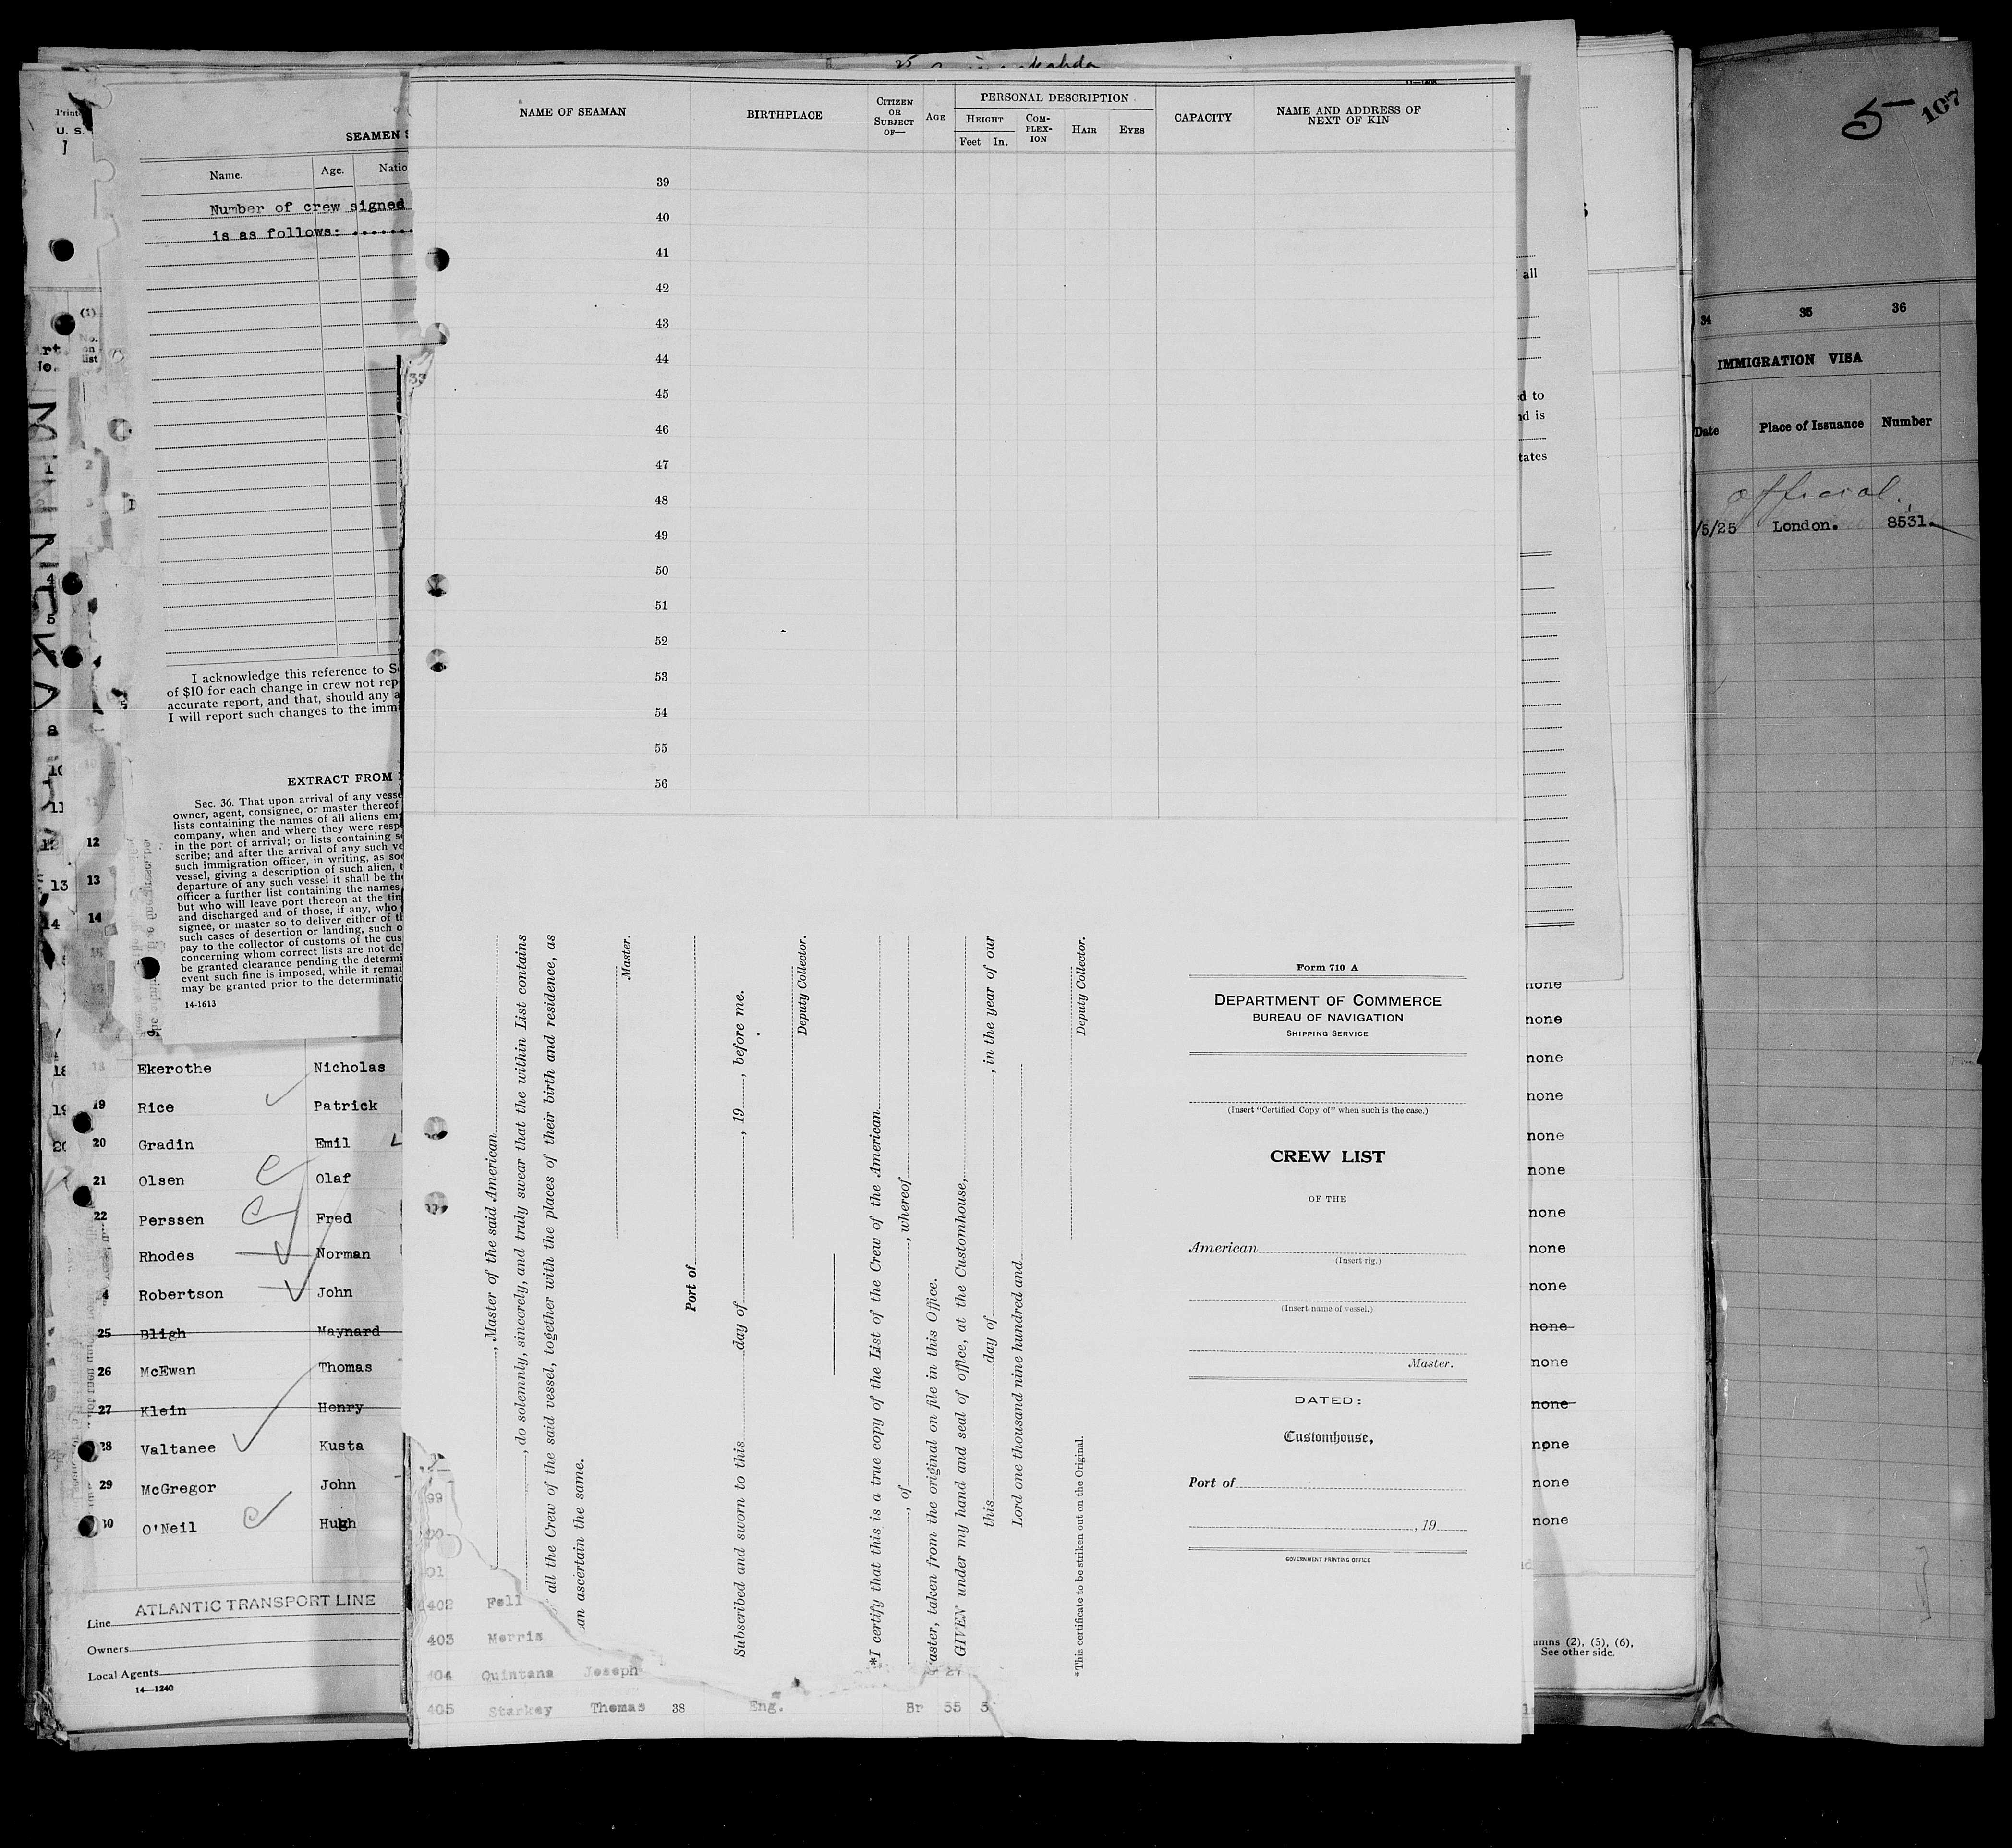 U. S.
SEAMEN
Name. Age. Natio
Number of crew signed
is as follows:
(1)
No.
on
list
I acknowledge this reference to S
of $10 for each change in crew not rep
accurate report, and that, should any a
I will report such changes to the imm
EXTRACT FROM
Sec. 36. That upon arrival of any vess
owner, agent, consignee, or master thereof
lists containing the names of all aliens em
company, when and where they were resp
in the port of arrival; or lists containing s
scribe; and after the arrival of any such ve
such immigration officer, in writing, as so
vessel, giving a description of such alien, t
departure of any such vessel it shall be the
officer a further list containing the names
but who will leave port thereon at the tim
and discharged and of those, if any, who
signee, or master so to deliver either of th
such cases of desertion or landing, such o
pay to the collector of customs of the cus
concerning whom correct lists are not de
be granted clearance pending the determi
event such fine is imposed, while it remai
may be granted prior to the determinatio
14-1613
12
13
14
18 Ekerothe Nicholas
19 Rice Patrick
20 Gradin Emil
21 Olsen Olaf
22 Perssen Fred
Rhodes Norman
Robertson John
25 Bligh Maynard
26 McEwan Thomas
27 Klein Henry
28 Valtanee Kusta
29 McGregor John
30 O'Neil Hugh
Line ATLANTIC TRANSPORT LINE
Owners
Local Agents
14—1240
NAME OF SEAMAN
BIRTHPLACE
CITIZEN
OR
SUBJECT
OF—
AGE
PERSONAL DESCRIPTION
HEIGHT
Feet In.
COM-
PLEX-
ION
HAIR
EYES
CAPACITY
NAME AND ADDRESS OF
NEXT OF KIN
39
40
41
42
43
44
45
46
47
48
49
50
51
52
53
54
55
56
, Master of the said American
, do solemnly, sincerely, and truly swear that the within List contains
all the Crew of the said vessel, together with the places of their birth and residence, as
an ascertain the same.
Master.
Port of
Subscribed and sworn to this day of , 19 , before me.
Deputy Collector.
*I certify that this is a true copy of the List of the Crew of the American
, of , whereof
aster, taken from the original on file in this Office.
GIVEN under my hand and seal of office, at the Customhouse,
this day of , in the year of our
Lord one thousand nine hundred and
Deputy Collector.
*This certificate to be striken out on the Original.
Form 710 A
DEPARTMENT OF COMMERCE
BUREAU OF NAVIGATION
SHIPPING SERVICE
(Insert "Certified Copy of" when such is the case.)
CREW LIST
OF THE
American
(Insert rig.)
(Insert name of vessel.)
Master.
DATED:
Customhouse,
Port of
, 19
GOVERNMENT PRINTING OFFICE
402 Fell
403 Morris
404 Quintana Joseph 27
405 Starkey Thomas 38 Eng. Br 35 5
all
d to
nd is
tates
none
none
none
none
none
none
none
none
none
none
none
none
none
none
none
umns (2), (5), (6),
See other side.
5
107
34 35 36
IMMIGRATION VISA
Date Place of Issuance Number
official.
/5/25 London. 8531.